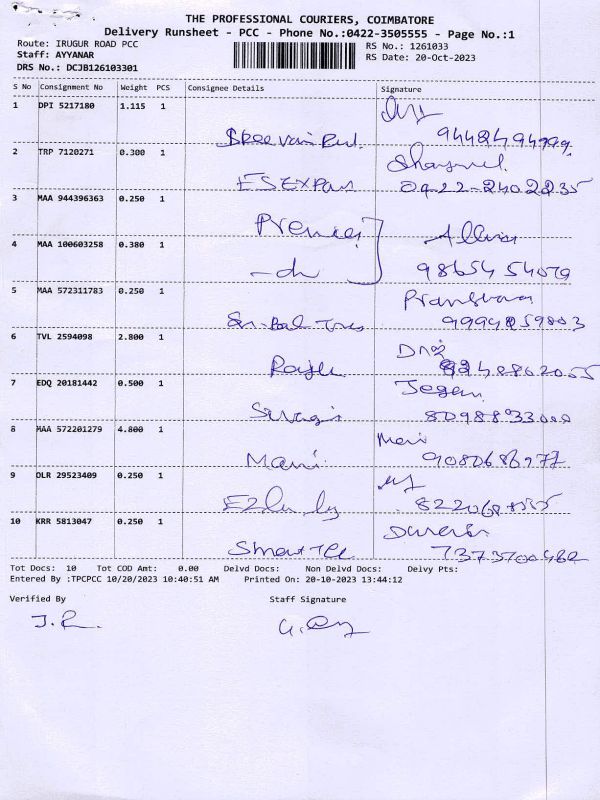 THE PROFESSIONAL COURIERS, COIMBATORE
Delivery Runsheet - PCC - Phone No.:0422-3505555 - Page No.:1
Route: IRUGUR ROAD PCC
Staff: AYYANAR
DRS No.: DCJB126103301
RS No.: 1261033
RS Date: 20-Oct-2023
S No Consignment No Weight PCS Consignee Details Signature
1 DPI 5217180 1.115 1
2 TRP 7120271 0.300 1
ES EXPort 0422-2402235
3 MAA 944396363 0.250 1
Premier
4 MAA 100603258 0.380 1
-do 98654 54079
5 MAA 572311783 0.250 1
6 TVL 2594098 2.800 1
7 EDQ 20181442 0.500 1
Jegan
8 MAA 572201279 4.800 1
Mani
Mani 9080686977
9 DLR 29523409 0.250 1
10 KRR 5813047 0.250 1
7373700482
Tot Docs: 10 Tot COD Amt: 0.00 Delvd Docs: Non Delvd Docs: Delvy Pts:
Entered By :TPCPCC 10/20/2023 10:40:51 AM Printed On: 20-10-2023 13:44:12
Verified By Staff Signature
J.R.